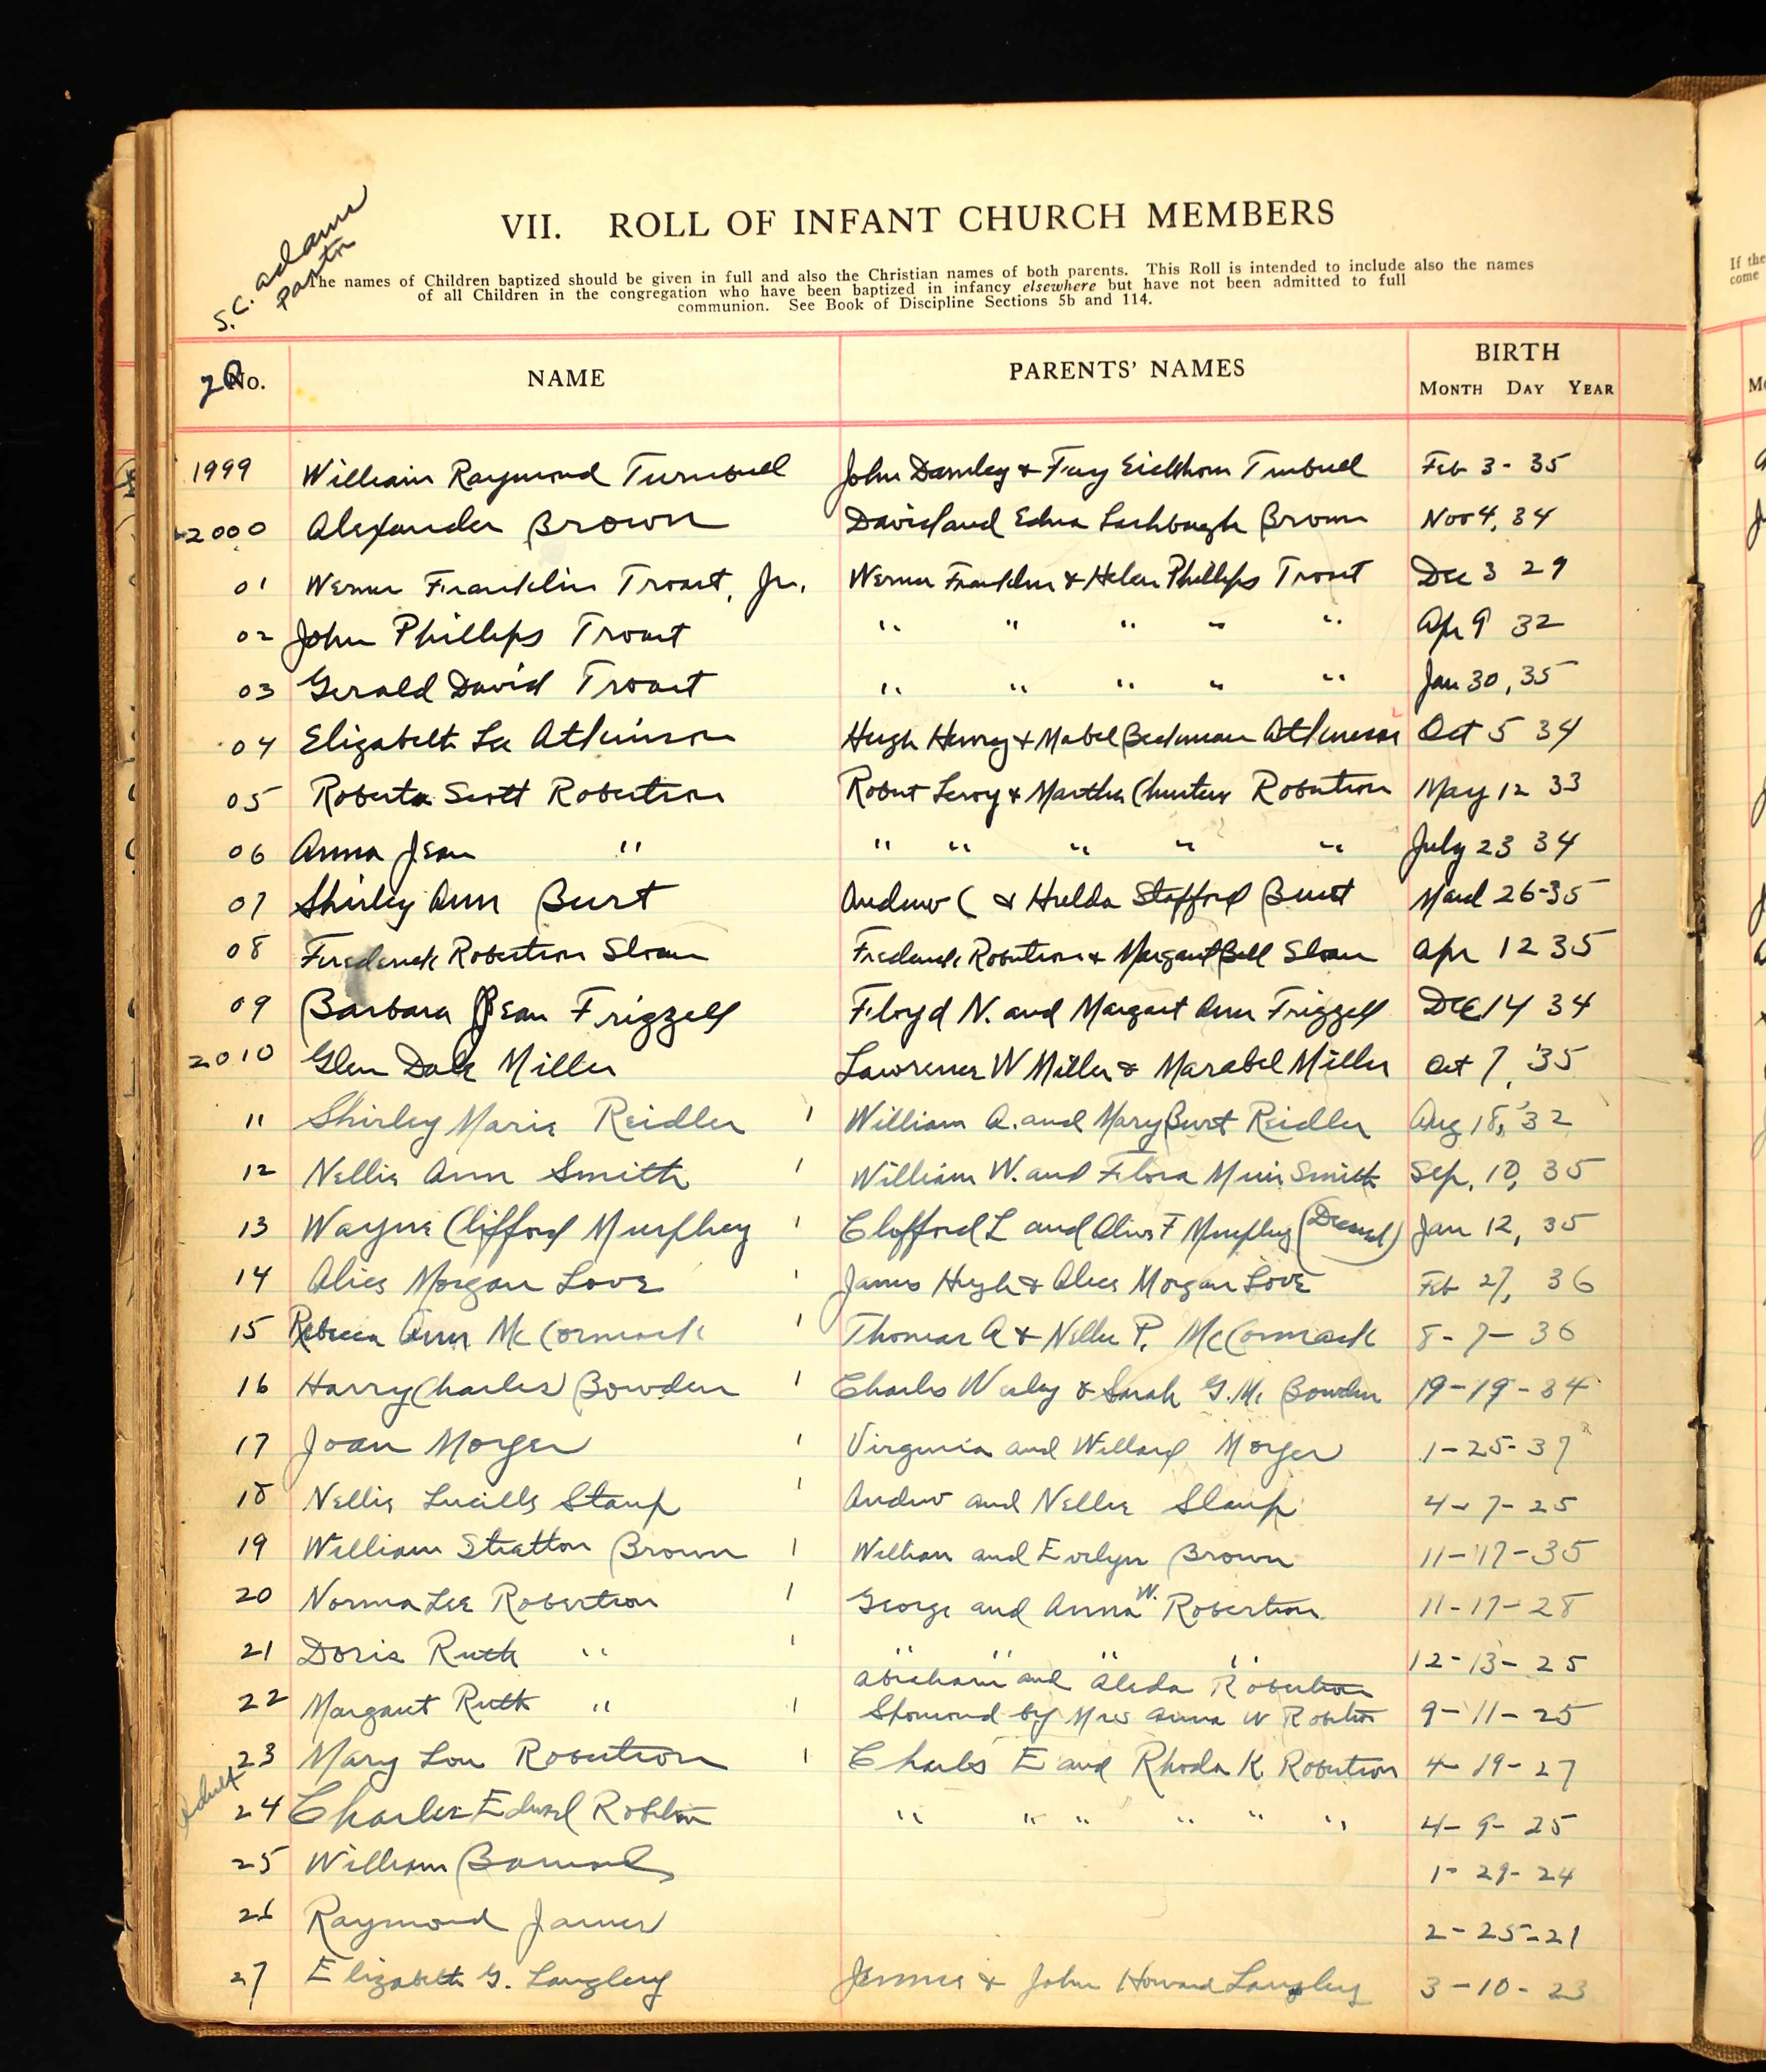 S. C. Adams
Pastor
VII. ROLL OF INFANT CHURCH MEMBERS
The names of Children baptized should be given in full and also the Christian names of both parents. This Roll is intended to include also the names
of all Children in the congregation who have been baptized in infancy elsewhere but have not been admitted to full
communion. See Book of Discipline Sections 5b and 114.
20 No. NAME PARENTS' NAMES BIRTH
MONTH DAY YEAR
1999 William Raymond Turnbull John Darnley & Eickhorn Turnbull Feb 3- 35
2000 Alexander Brown David and Edna Brown Nov 4, 34
01 Werner Franklin Trout, Jr. Werner Franklin & Helen Phillips Trout Dec 3 29
02 John Phillips Trout " " " " " Apr 9 32
03 Gerald David Trout " " " " " Jan 30, 35
04 Elizabeth Lee Atkinson Hugh Henry & Mabel Beckman Atkinson Oct 5 34
05 Roberta Scott Robertson Robert Leroy & Martha Robertson May 12 33
06 Anna Jean " " " " " " July 23 34
07 Shirley Ann Burt Andrew C & Hulda Stafford Burt March 26-35
08 Frederick Robertson Sloan Frederick Robertson & Margaret Bell Sloan Apr 12 35
09 Barbara Jean Frizzell Floyd N. and Margaret Ann Frizzell Dec 14 34
2010 Glen Dale Miller Lawrence W Miller & Marabel Miller Oct 7, '35
11 Shirley Marie Reidler William A. and Mary Burt Reidler Aug 18, '32
12 Nellie Ann Smith William W. and Flora Muir Smith Sep. 10, 35
13 Wayne Clifford Murphey Clofford L and Olive F Murphey Jan 12, 35
14 Alice Morgan Love James Hugh & Alice Morgan Love Feb 27, 36
15 Rebecca Ann McCormack Thomas A & Nellie P. McCormack 8-7-36
16 Harry Charles Bowden Charles Wesley & Sarah G. Mc Bowden 19-19-34
17 Joan Moyer Virginia and Willard Moyer 1-25-37
18 Nellie Lucille Staup Andrew and Nellie Slaup 4-7-25
19 William Stratton Brown William and Evelyn Brown 11-17-35
20 Norma Lee Robertson George and Anna W. Robertson 11-17-28
21 Doris Ruth " " " " " 12-13-25
22 Margaret Ruth " Abraham and Aleda Robertson 9-11-25
Sponsored by Mrs Anna W Robertson
23 Mary Lou Robertson Charles E and Rhoda K Robertson 4-19-27
Adult
24 Charles Edward Robertson " " " " " " 4-9-25
25 William 1-29-24
26 Raymond James 2-25-21
27 Elizabeth G. Langley Jennie & John Howard Langley 3-10-23
If the
come